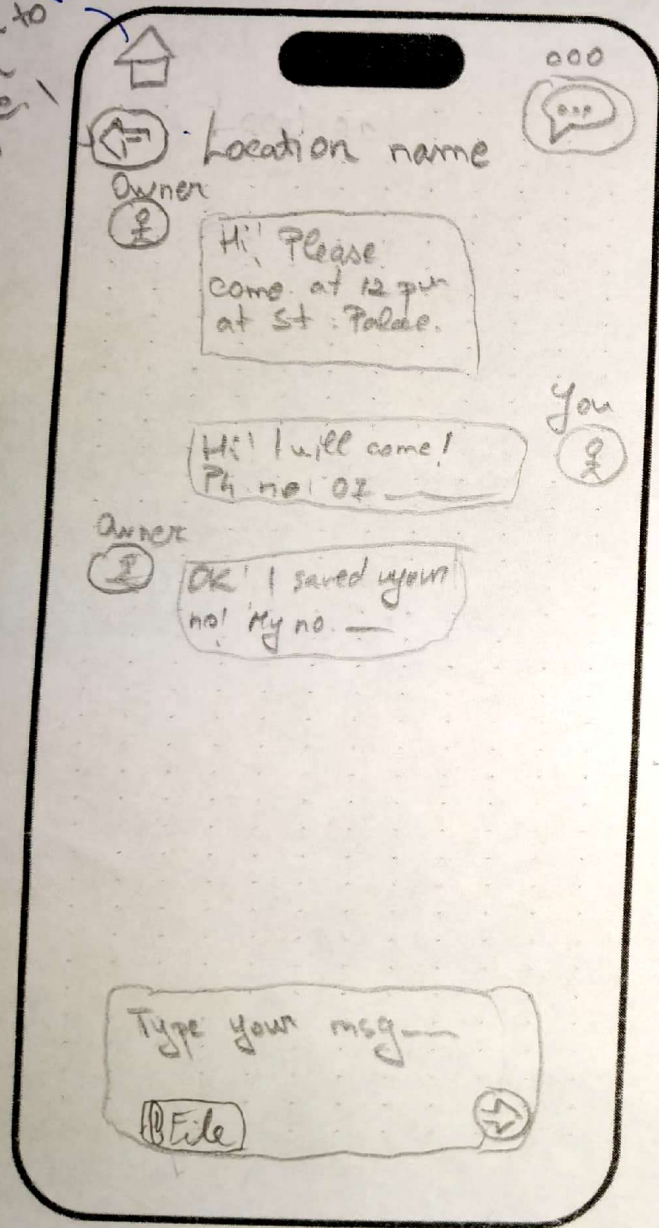 to
Location name
Owner
Hi! Please
come at 12 pm
at St. Palace.
You
Hi! I will come!
Ph no! 07
Owner
Ok! I saved your
no! My no.
Type your msg
File